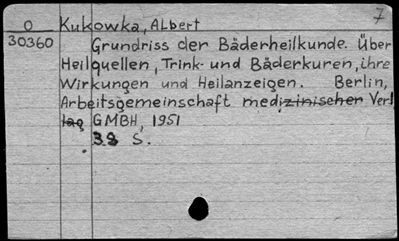 7
O Kukowka, Albert
30360 Grundriss der Bäderheilkunde. Über
Heilquellen, Trink- und Bäderkuren, ihre
Wirkungen und Heilanzeigen. Berlin,
Arbeitsgemeinschaft medizinischer Verl
lag GMBH, 1951
S.